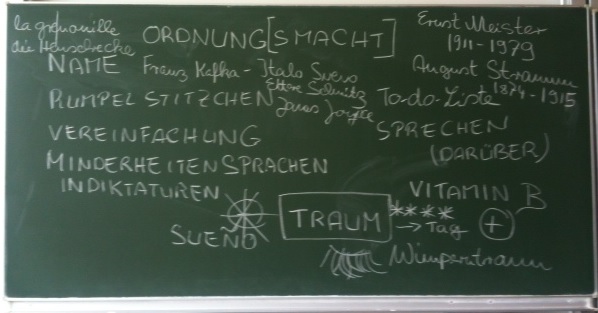 la grenouille
die Heuschrecke
ORDNUNG[SMACHT]
Ernst Meister
1911-1979
NAME Franz Kafka - Italo Svevo
Ettore Schmitz
August Stramm
1874-1915
RUMPELSTITZCHEN James Joyce To-do-Liste
VEREINFACHUNG
SPRECHEN
(DARÜBER)
MINDERHEITENSPRACHEN
IN DIKTATUREN
VITAMIN B
TRAUM ****
→ Tag +
SUEÑO
Wimperntraum